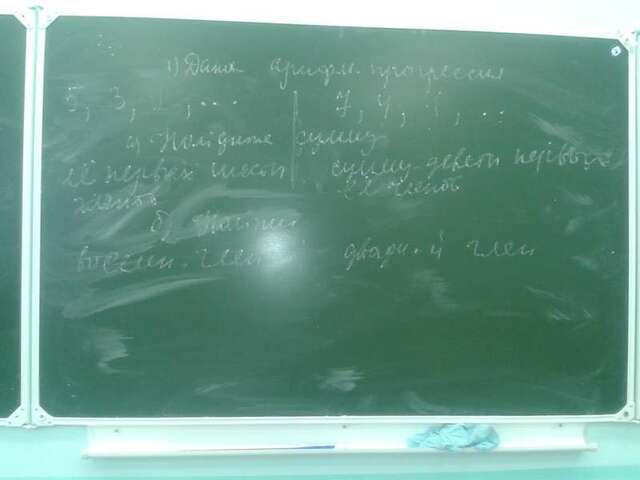 1) Дана арифм. прогрессия
5, 3, 1, ... 7, 4, 1, ...
а) Найдите сумму
её первых шести сумму девяти первых
членов её членов
б) Найти
восьми. член двадц-й член